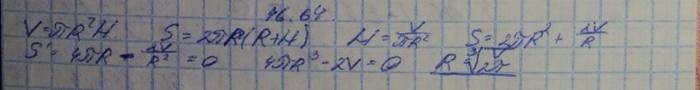 46.64.
V=πR²H S=2πR(R+H) H=V/πR² S=2πR²+2V/R
S'=4πR-2V/R²=0 4πR³-2V=0 R=∛V/2π